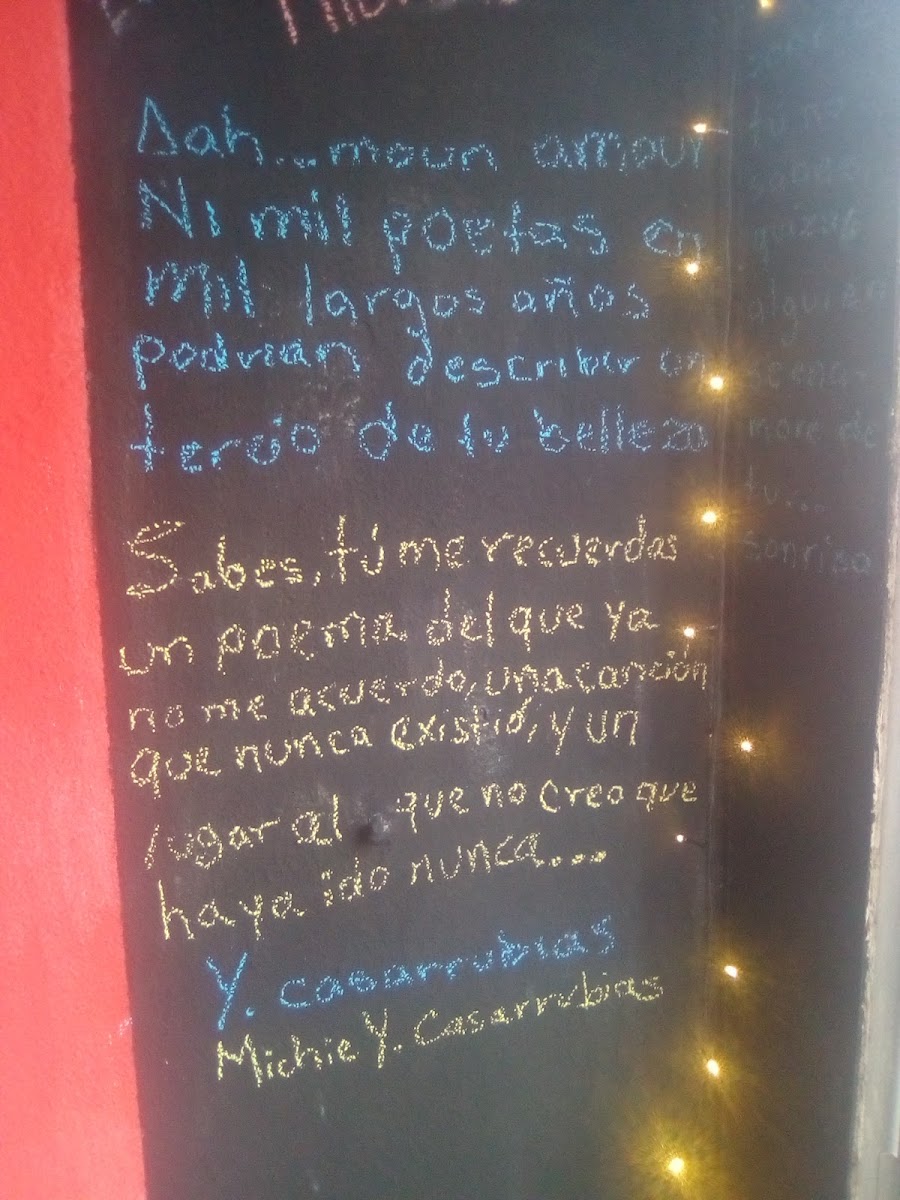 Aah... moun amour
Ni mil poetas en
mil largos años
podrian describir un
tercio de tu belleza
Sabes, tú me recuerdas
un poema del que ya
no me acuerdo, una canción
que nunca existió, y un
lugar al que no creo que
haya ido nunca....
Y. Casarrubias
Michie Y. Casarrubias
tú no
sabes
quizás
alguien
se ena-
more de
tu...
sonrisa